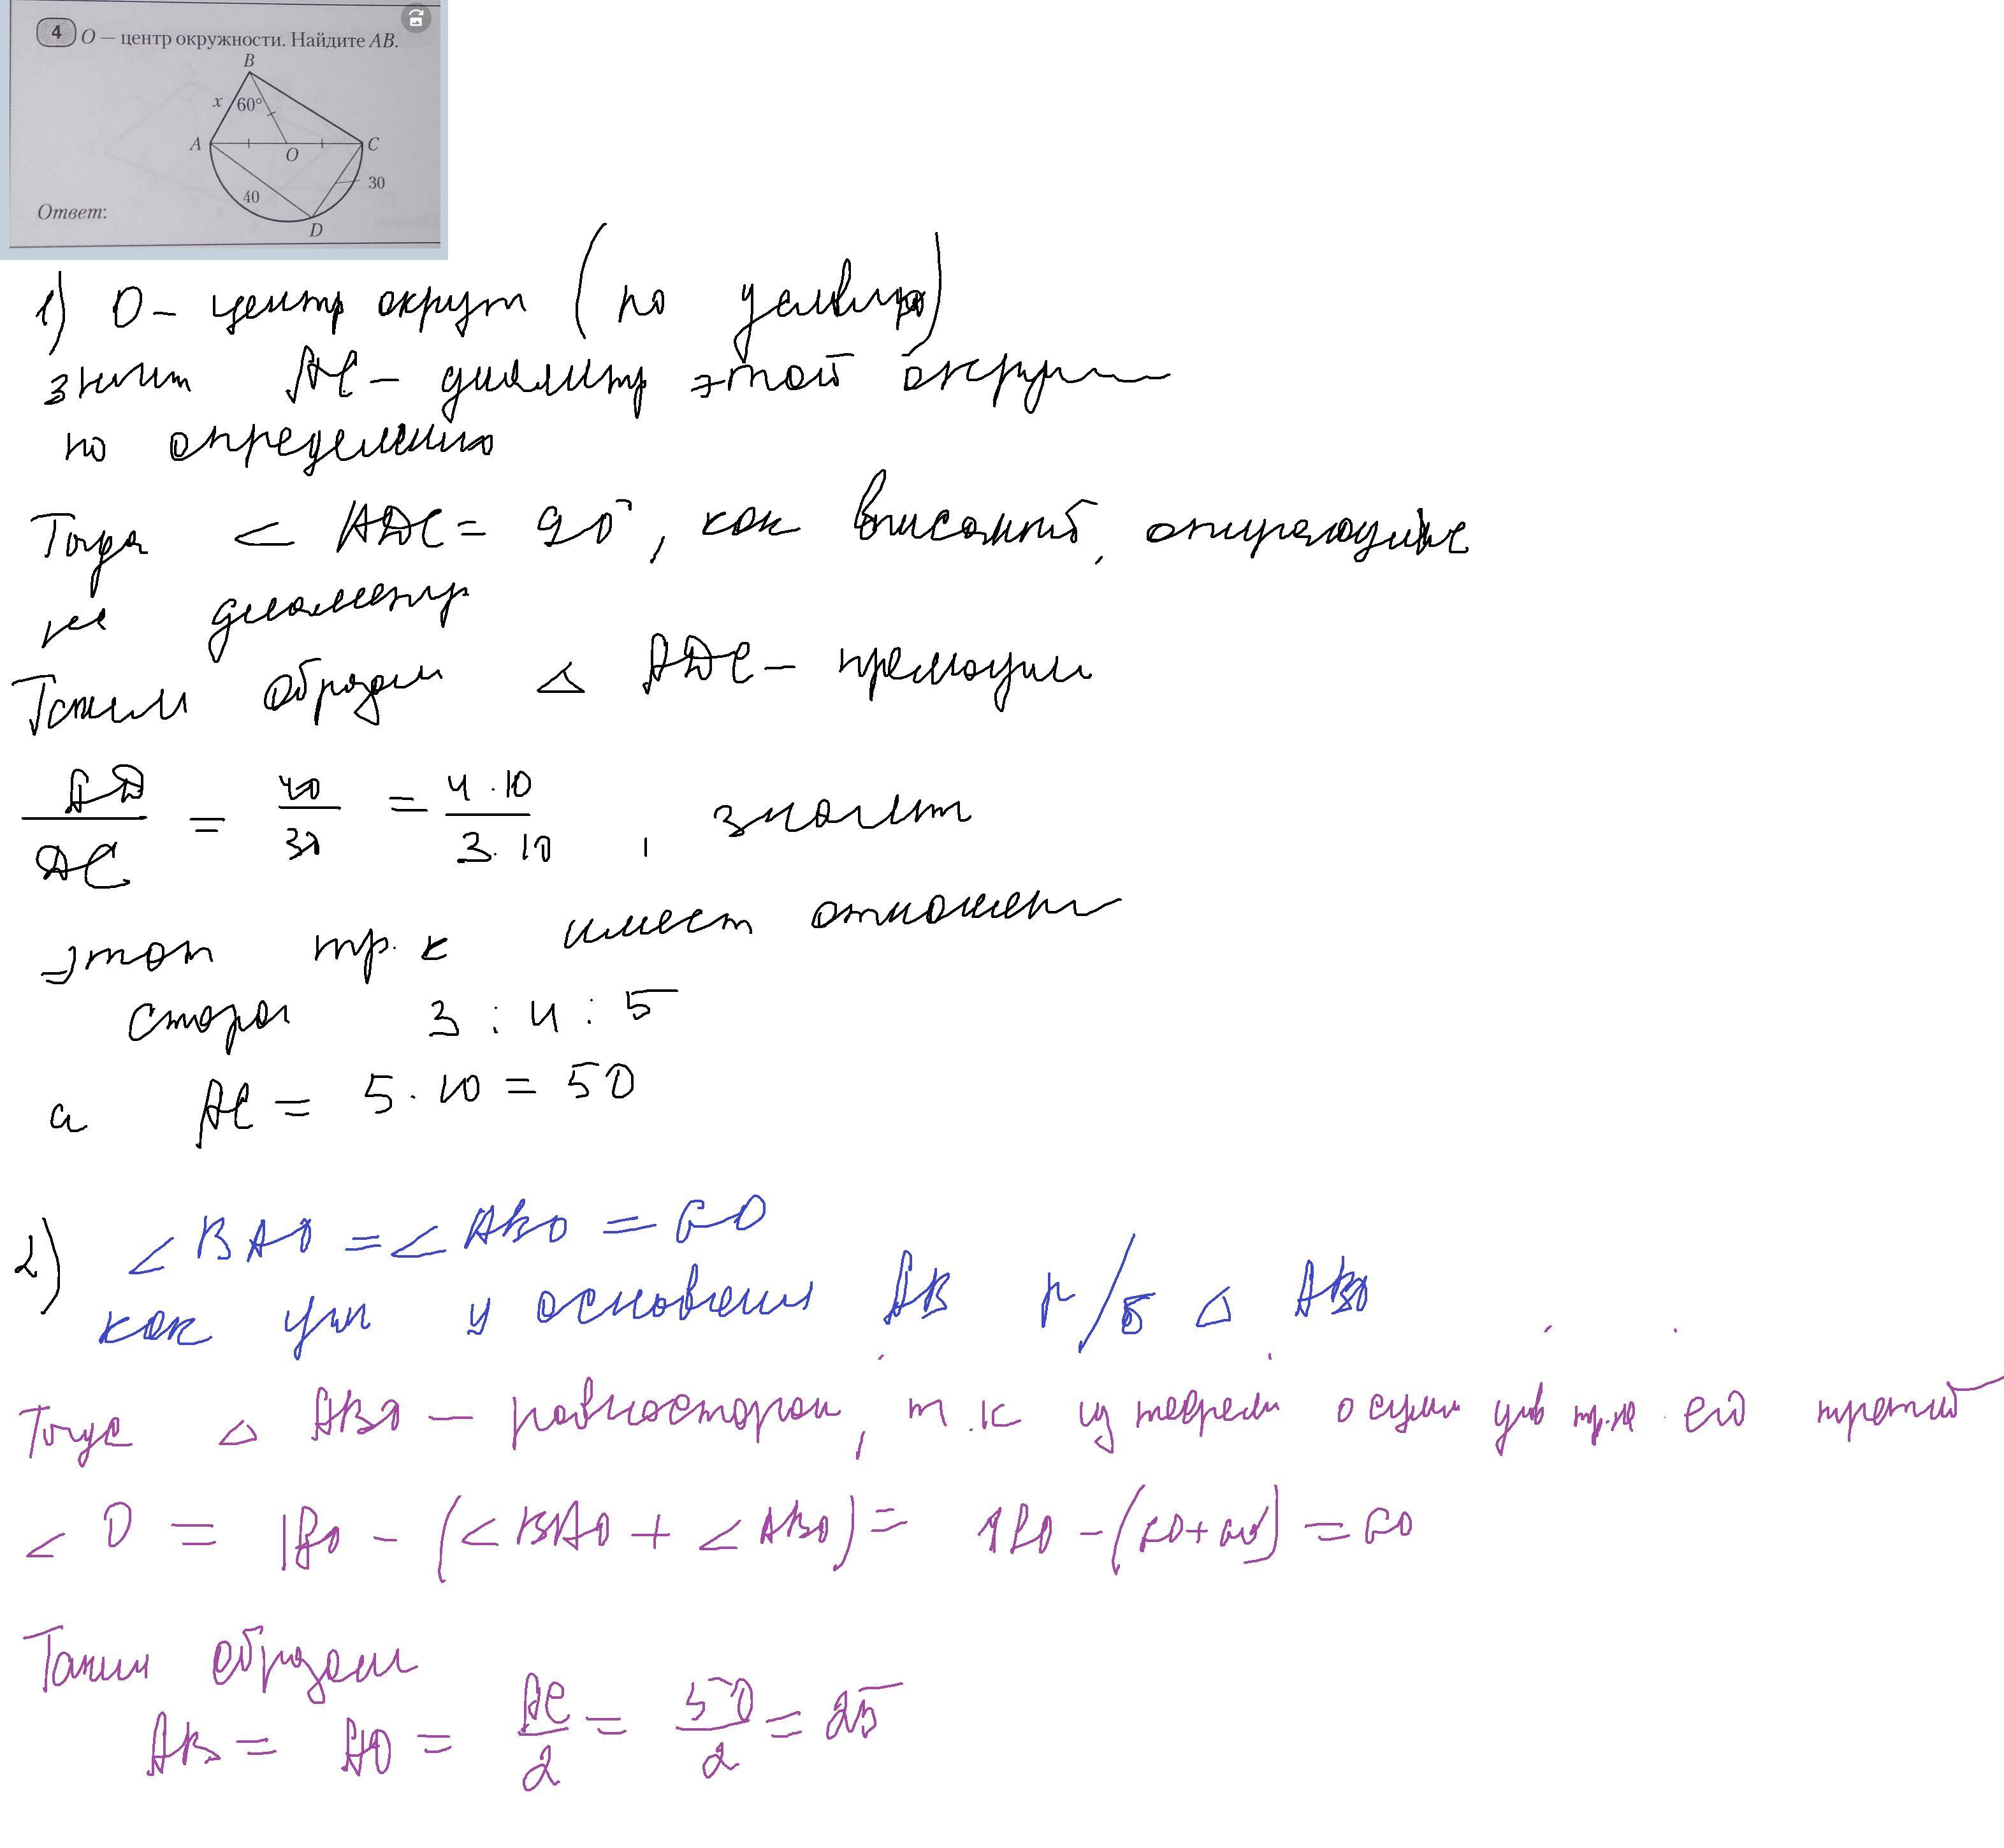 4 O — центр окружности. Найдите AB.
B
x 60°
A O C
30
40
Ответ:
D
1) O – центр окружн (по условию)
значит AC – диаметр этой окружн
по определению
Тогда ∠ ADC = 90°, как вписанный, опирающийся
на диаметр
Таким образом △ ADC – прямоугол
AD/DC = 40/30 = 4·10/3·10, значит
этот тр.к имеет отношен
сторон 3 : 4 : 5
а AC = 5·10 = 50
2) ∠BAO = ∠ABO = 60
как угл у основания AB р/б △ ABO
Тогда △ ABO – равносторон, т.к из теорем о сумм углов тр.ка его третий
∠ O = 180 – (∠BAO + ∠ABO) = 180 – (60+60) = 60
Таким образом
AB = AO = AC/2 = 50/2 = 25